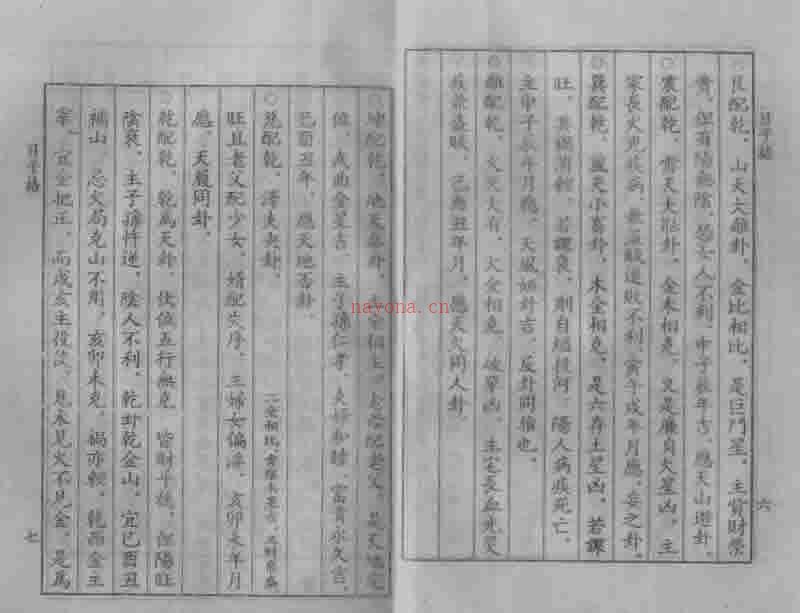 ○艮配乾、山天大畜卦、金比相比、是巨門星、主貨財榮
貴、但有陽無陰、恐女人不利、申子辰年吉、應天山遯卦、
○震配乾、雷天大壯卦、金木相克、又是廉貞火星凶、主
家長火光疾病、無益敗退敗不利、寅午戌年月應、妄之卦、
○巽配乾、風天小畜卦、木金相克、是六存土星凶、若課
旺、投河、陽人病疾死亡、
主申子辰年月應、天風姤卦吉、反卦同論也、
○離配乾、火天大有、火金相克、破軍凶、主宅長血光災
疾並盜賊、己酉丑年月、應天火同人卦
○坤配乾、地天泰卦、相生、老母配老父、是天地定
位、武曲金星吉、主子孫仁孝、夫婦和睦、富貴永久吉、
己酉丑年、應天地否卦、
○兌配乾、澤天夬卦、二金相比
旺且老父配少女、婚配失序、主婦女偏淫、亥卯未年月
應、天履同卦、
○乾配乾、乾為天卦、伏位五行無克、皆財平穩、但陽旺
陰衰、主子孫忤逆、陰人不利、乾卦乾金山、宜己酉丑
福山、忌火局克山不用、亥卯未克、禍亦輕、乾屬金主
宰、宜金把正、而戌亥主役父、見木見火不見金、是為
日平結
六
日平結
七
nayona.cn